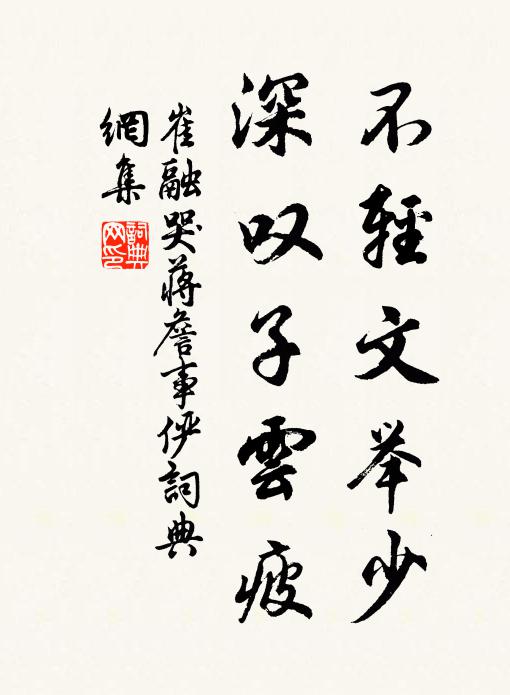 不輕文举少
深叹子雲疲
崔融哭蔣詹事俨詞典
網集
詞典
网印